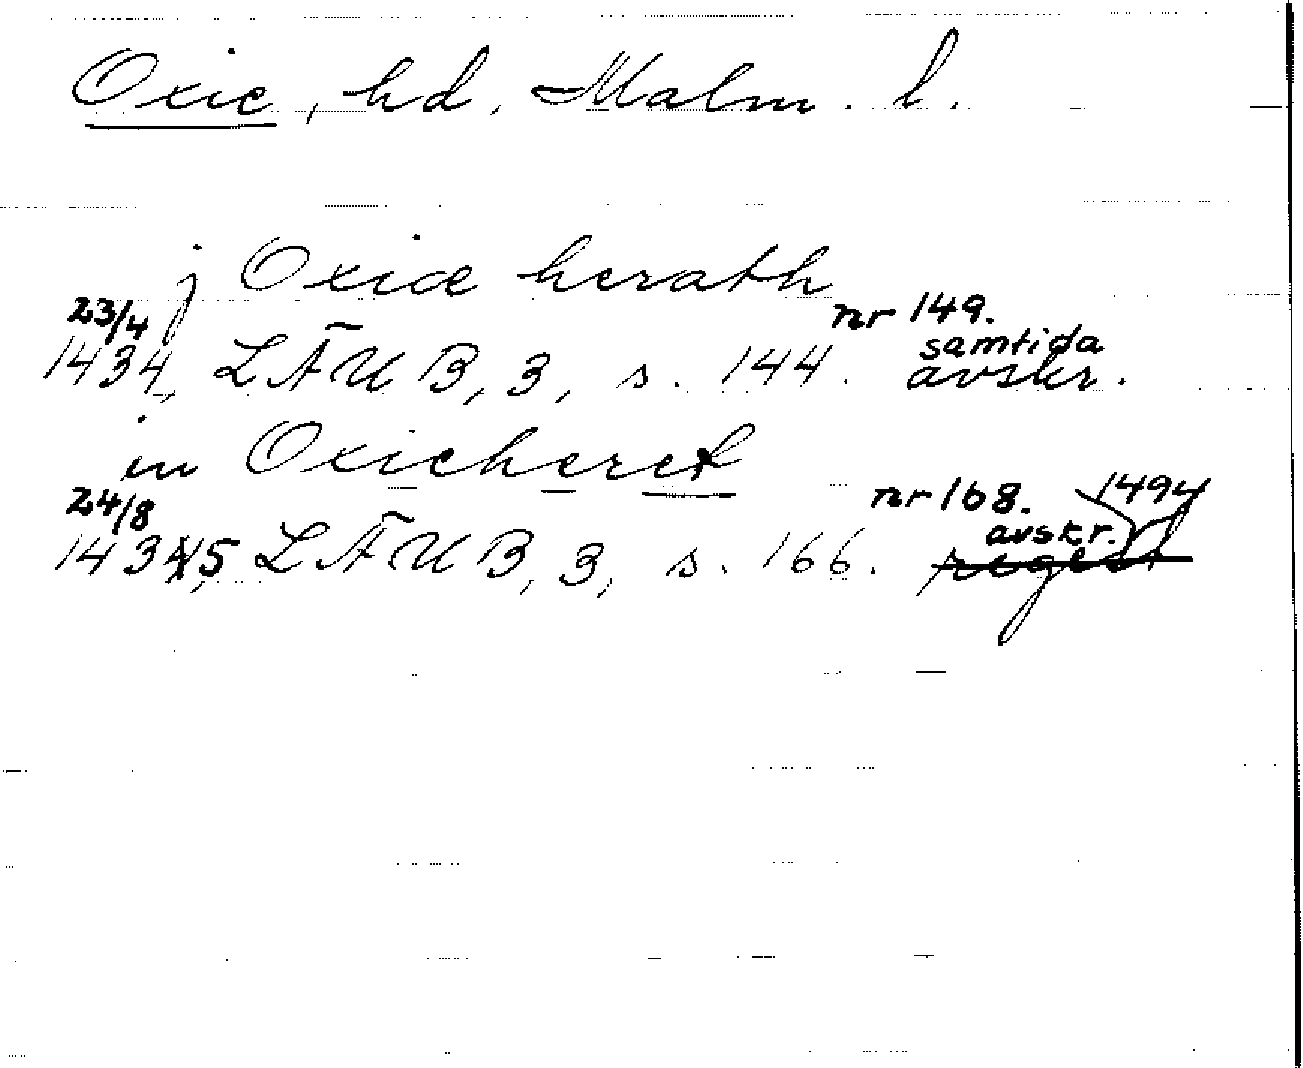 Oxie, hd, Malm. l.
j Oxiæ herath
23/4 nr 149.
1434, LÄUB, 3, s. 144. samtida avskr.
in Oxieheret
24/8 nr 168. 1494
1435, LÄUB, 3, s. 166. avskr.